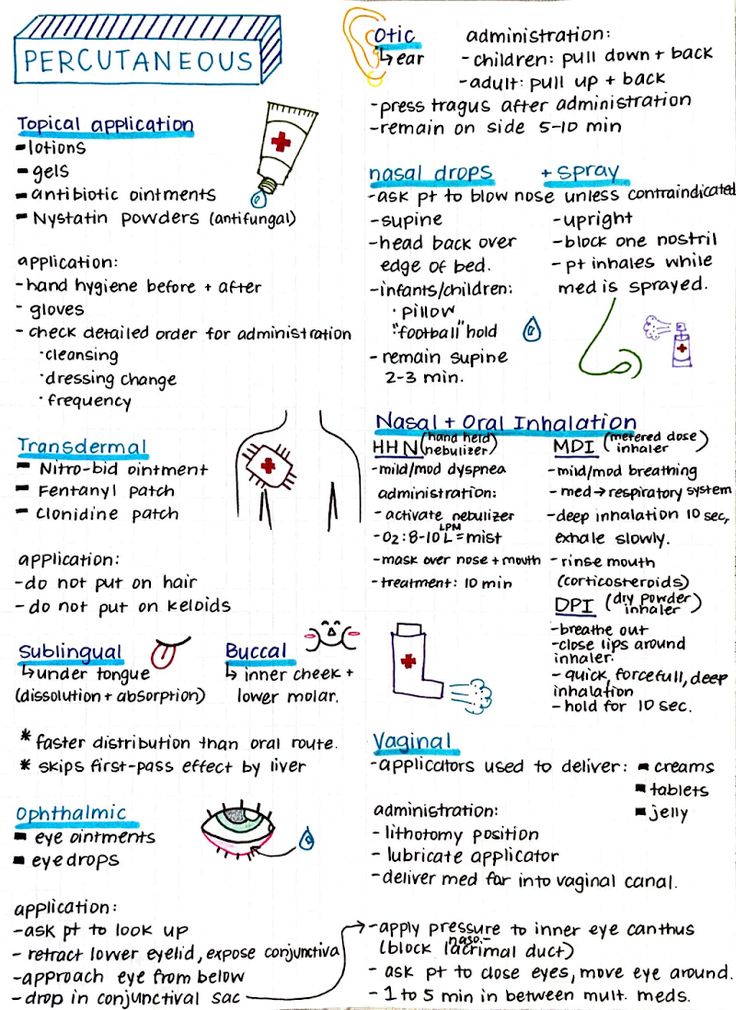 PERCUTANEOUS
Topical application
- lotions
- gels
- antibiotic ointments
- Nystatin powders (antifungal)
application:
- hand hygiene before + after
- gloves
- check detailed order for administration
· cleansing
· dressing change
· frequency
Transdermal
- Nitro-bid ointment
- Fentanyl patch
- Clonidine patch
application:
- do not put on hair
- do not put on keloids
Sublingual
↳ under tongue
(dissolution + absorption)
Buccal
↳ inner cheek +
lower molar.
* faster distribution than oral route.
* skips first-pass effect by liver
Ophthalmic
- eye ointments
- eyedrops
application:
- ask pt to look up
- retract lower eyelid, expose conjunctiva
- approach eye from below
- drop in conjunctival sac
Otic
↳ ear
administration:
- children: pull down + back
- adult: pull up + back
- press tragus after administration
- remain on side 5-10 min
nasal drops
- ask pt to blow nose unless contraindicated
- supine
- head back over
edge of bed.
- infants/children:
· pillow
· "football" hold
- remain supine
2-3 min.
+ spray
- upright
- block one nostril
- pt inhales while
med is sprayed.
Nasal + Oral Inhalation
HHN (hand held nebulizer)
- mild/mod dyspnea
administration:
- activate nebulizer
- O2: 8-10 L LPM = mist
- mask over nose + mouth
- treatment: 10 min
MDI (metered dose inhaler)
- mild/mod breathing
- med → respiratory system
- deep inhalation 10 sec,
exhale slowly.
- rinse mouth
(corticosteroids)
DPI (dry powder inhaler)
- breathe out
- close lips around
inhaler.
- quick, forcefull, deep
inhalation
- hold for 10 sec.
Vaginal
- applicators used to deliver:
- creams
- tablets
- jelly
administration:
- lithotomy position
- lubricate applicator
- deliver med far into vaginal canal.
- apply pressure to inner eye canthus
(block naso-lacrimal duct)
- ask pt to close eyes, move eye around.
- 1 to 5 min in between mult. meds.